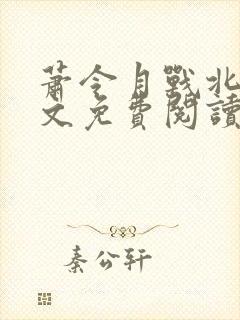 蕭令月戰北
文免費閱讀
秦公轩